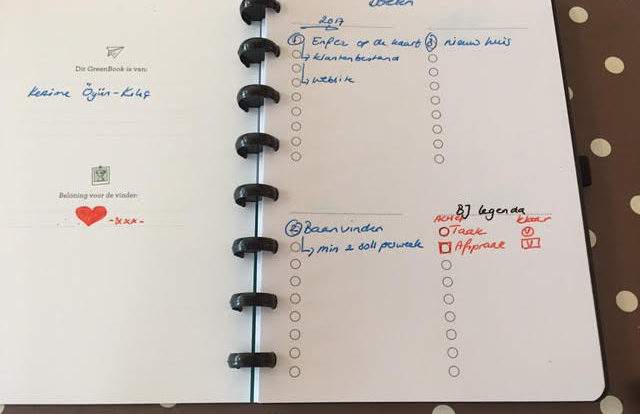 Dit GreenBook is van:
Kerime Öğün-Kılıç
Beloning voor de vinder:
-xxx-
Doelen
2017
1 Enfez op de kaart
klantenbestand
website
3 nieuw huis
2 Baan vinden
min 2 soll per week
BJ legenda
Actief klaar
Taak V
Afspraak V